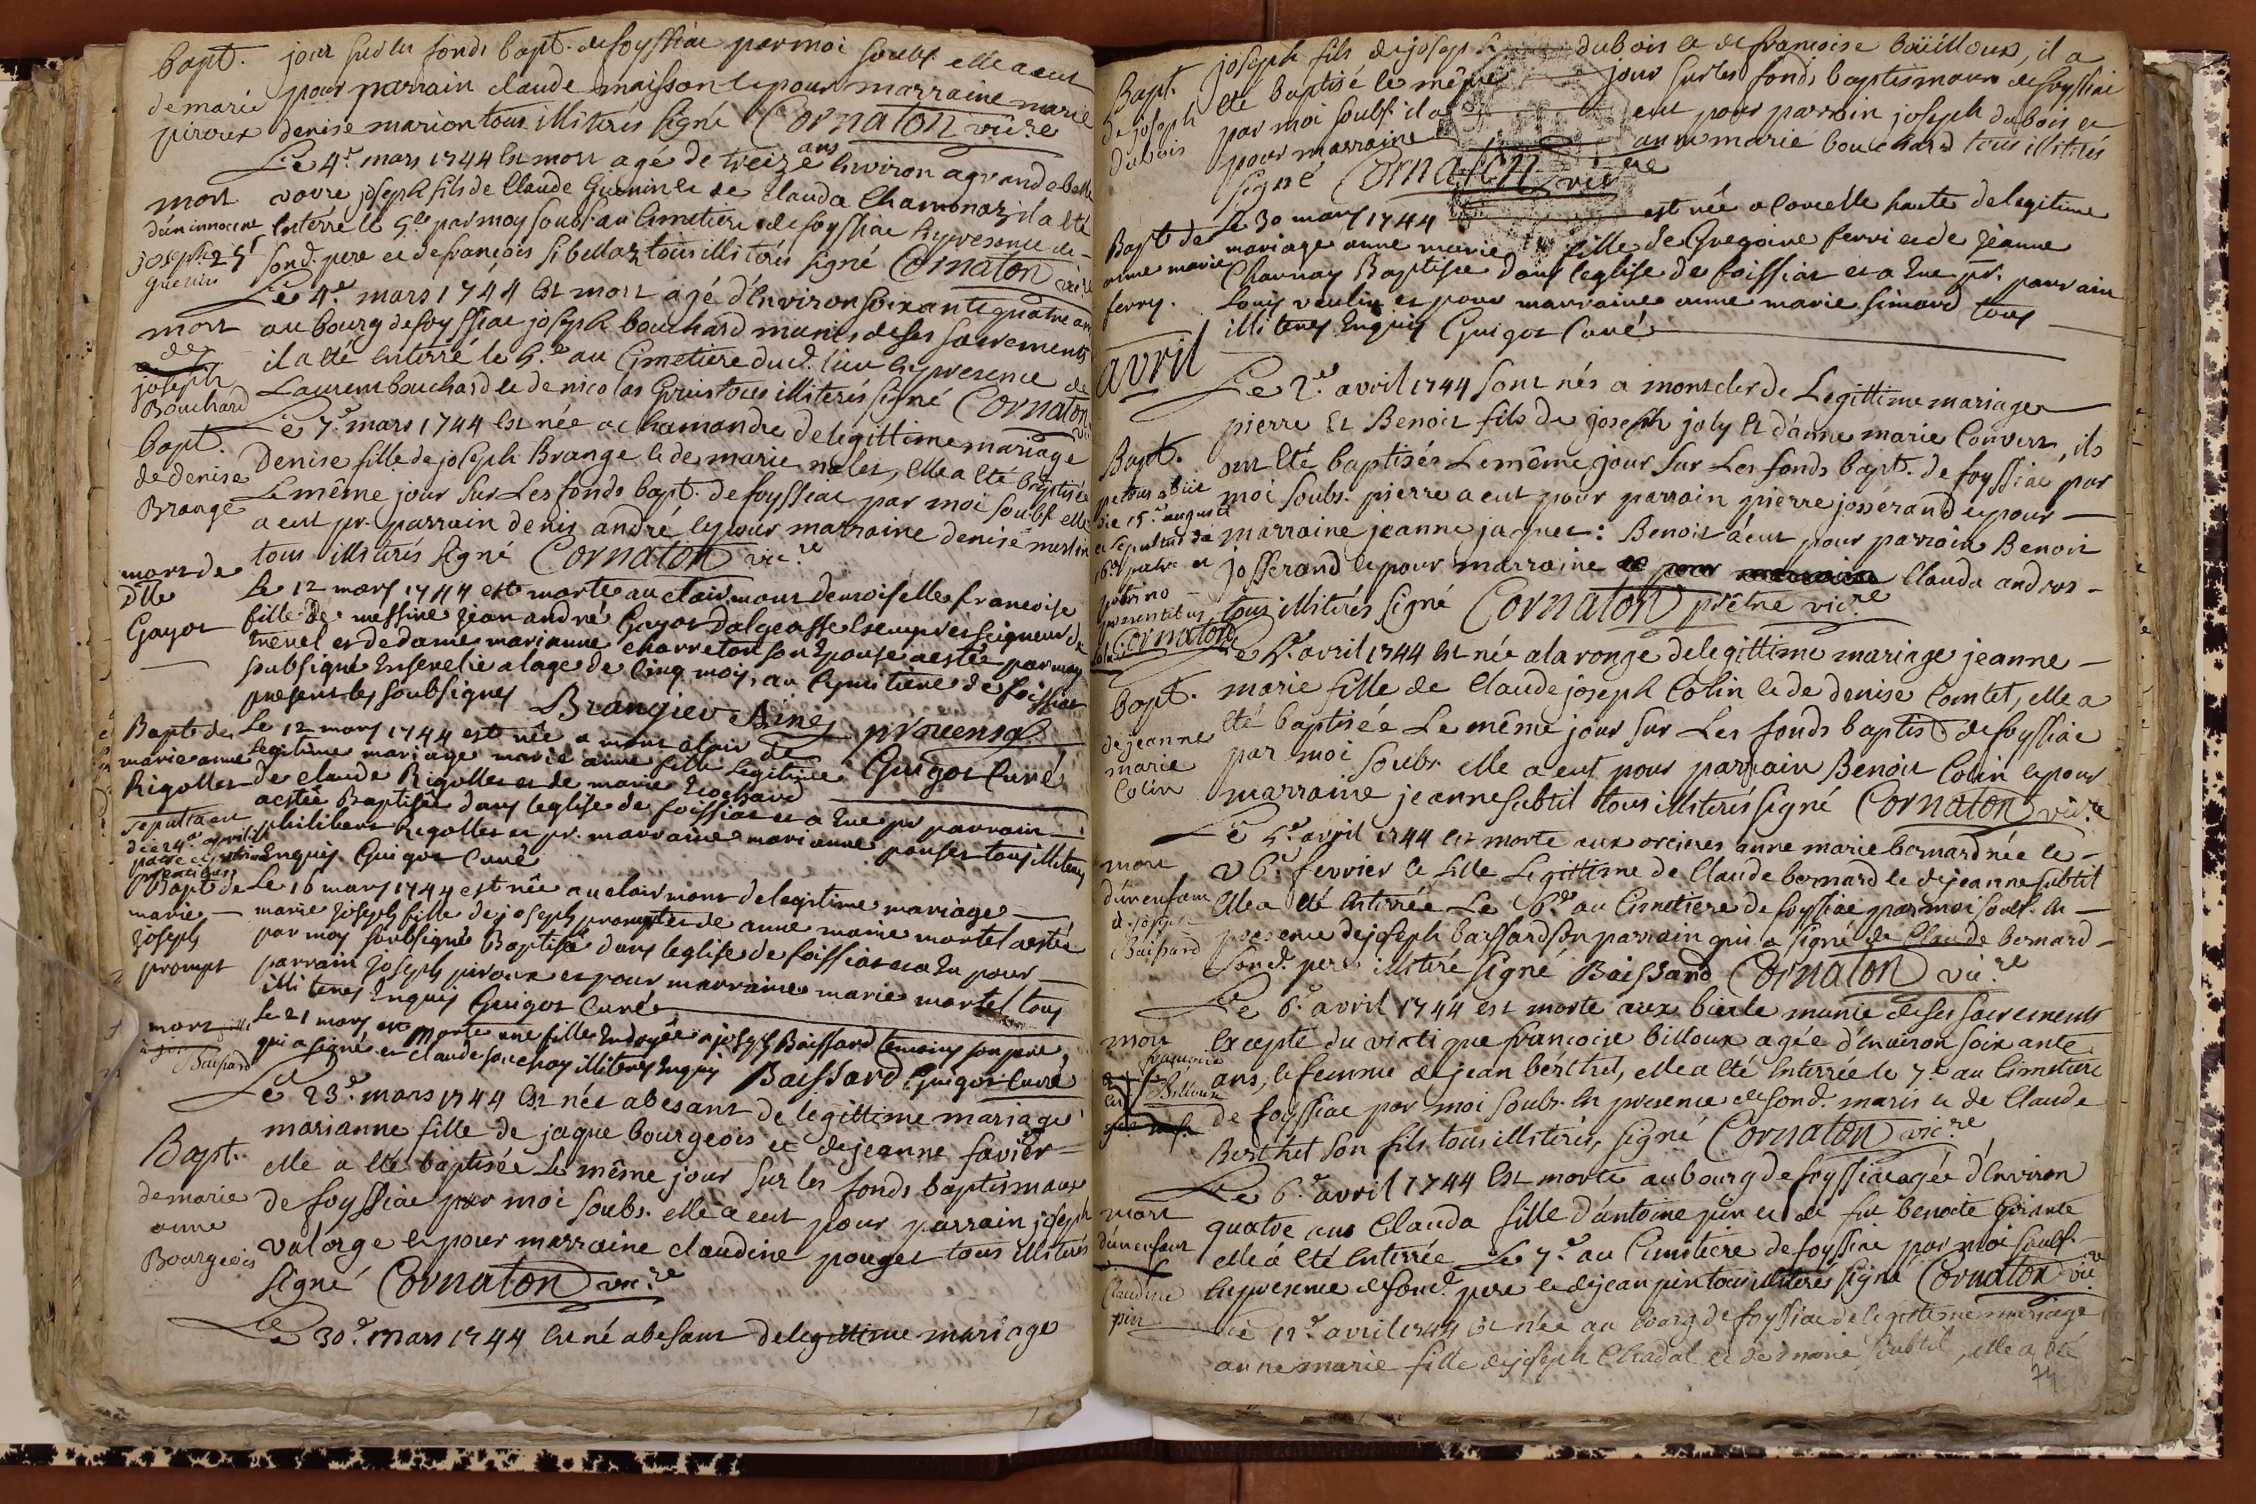 Bapt.
de marie
piroux
jour sur les fonds bapt. de foyssiac par moi soubs. elle a eut
pour parrain claude maisson et pour marraine marie
denise marion tous illiterés signé Cornaton vic.re
mort
d'un innocent
joseph
guerin
Le 4.e mars 1744 Est mort agé de treize ans Environ a grande belle
vavre joseph fils de Claude Guerin et de Clauda Chamonaz il a Eté
Enterré le 5.e par moy soubs. au Cimetiere de foyssiac En presence de
sond. pere et de françois sibellaz tous illiterés signé Cornaton vic.re
mort
de
joseph
Bouchard
Le 4.e mars 1744 Est mort agé d'Environ soixante quatre ans
au bourg de foyssiac joseph bouchard munis de ses sacrements
il a Eté Enterré le 5.e au Cimetiere dud. lieu En presence de
Laurent bouchard et de nicolas Gris tous illiterés signé Cornaton
vic.
Bapt.
de denise
Brange
Le 7.e mars 1744 Est née a chamandre de legittime mariage
Denise fille de joseph Brange et de marie nalet, Elle a Eté baptisée
Le même jour sur Les fonds bapt. de foyssiac par moi soubs. elle
a eut pr. parrain denis andré et pour marraine denise merlin
tous illiterés signé Cornaton vic.re
mort de
Dlle
Gayot
Le 12 mars 1744 est morte au clairmont demoiselle francoise
fille de messire Jean andré Gayot Dalgeasse Escuyer seigneur de
trenel et de dame marianne charreton son Epouse a esté par moy
soubsigné Ensevelie a lage de Cinq mois, au Cymitiere de foissiat
presents les soubsignes Brangier Ainé provensal
Guigot Curé
Bapt. de
marie anne
Rigollet
sepulta est
die 24.a aprilis
patre et patrino
presentibus
Le 12 mars 1744 est née a mont clair de
legitime mariage marie anne fille legitime
de claude Rigollet et de marie Brochard
a estée Baptisée dans leglise de foissiat et a Eue pr parrain
philibert Rigollet et pr. marraine marianne ponset tous illiteres
Enquis Guigot Curé
Bapt de
marie
Joseph
prompt
Le 16 mars 1744 est née au clairmont de legitime mariage
marie Joseph fille de joseph prompt et de anne marie martel a estée
par moy soubsigné Baptisée dans leglise de foissiat et a Eu pour
parrain Joseph piroux et pour marraine marie martel tous
illiteres Enquis Guigot Curé
mort
Baissard
Le 21 mars est morte une fille Endoyée a joseph Baissard temoins son pere
qui a signé et claude souchay illiteres Enquis Baissard Guigot Curé
Bapt.
de marie
anne
Bourgeois
Le 23.e mars 1744 Est née a besant de legittime mariage
marianne fille de jaque bourgeois et de jeanne favier
elle a Eté baptisée Le même jour sur les fonds baptismaux
de foyssiac par moi soubs. elle a eut pour parrain joseph
valorge et pour marraine claudine pouget tous illiterés
signé Cornaton vic.re
Le 30.e mars 1744 Est né a besant de legittime mariage
Bapt.
de joseph
dubois
joseph fils de joseph dubois et de francoise boüilloux, il a
eté baptisé le même jour sur les fonds baptismaux de foyssiac
par moi soubs. il a eut pour parrain joseph dubois et
pour marraine anne marie bouchard tous illiterés
signé Cornaton vic.re
Bapt de
anne marie
ferry.
Le 30 mars 1744 est née a lorcelle haute de legitime
mariage anne marie fille de Gregoire ferri et de Jeanne
Charnay Baptisée dans leglise de foissiat et a Eue pr. parrain
Louis vaulin et pour marraine anne marie simard tous
illiteres Enquis Guigot Curé
avril
Bapt.
Le 2.e avril 1744 sont nés a montcler de Legittime mariage
pierre Et Benoit fils de joseph joly Et d'anne marie Convert, ils
ont Eté baptisés Le même jour sur Les fonds bapt. de foyssiac par
moi soubs. pierre a eut pour parrain pierre josserand et pour
marraine jeanne jaquet: Benoit a eut pour parrain Benoit
josserand et pour marraine Clauda andras
tous illiterés signé Cornaton prêtre vic.re
petrus obiit
die 15.a augusti
et sepultus die
16.a patre et
patrino
presentibus
Cornaton
Bapt.
de jeanne
marie
Colin
Le 4.e avril 1744 Est née a la ronge de legittime mariage jeanne
marie fille de Claude joseph Colin et de denise Comtet, elle a
Eté baptisée Le même jour sur Les fonds baptis. de foyssiac
par moi soubs. elle a eut pour parrain Benoit Colin et pour
marraine jeanne subtil tous illiterés signé Cornaton vic.re
mort
d'un enfant
d. joseph
Baissard
Le 5.e avril 1744 Est morte aux orcieres anne marie bernard née le
26.e fevrier et fille Legittime de Claude bernard et de jeanne subtil
Elle a Eté Enterrée Le 6.e au Cimetiere de foyssiac par moi soubs. En
presence de joseph baissard son parrain qui a signé et de Claude bernard
sond. pere illiteré signé Baissard Cornaton vic.re
mort
francoise
Billoux
Le 6.e avril 1744 est morte aux bierle munie de ses sacrements
Excepté du viatique francoise billoux agée d'Environ soixante
ans, et femme de jean bérthet, elle a Eté Enterrée le 7.e au Cimetiere
de foyssiac par moi soubs. En presence de sond. maris et de Claude
Berthet son fils tous illiterés, signé Cornaton vic.re
mort
d'un enfant
Claudine
pin
Le 6.e avril 1744 Est morte au bourg de foyssiac agée d'Environ
quatre ans Clauda fille d'antoine pin et de fue benoite Guirante
elle a Eté Enterrée Le 7.e au Cimetiere de foyssiac par moi soubs.
En presence de sond. pere et de jean pin tous illiterés signé Cornaton vic.re
Le 12.e avril 1744 Est née au bourg de foyssiac de legittime mariage
anne marie fille de joseph Chadal et de marie Subtil, elle a Eté
74